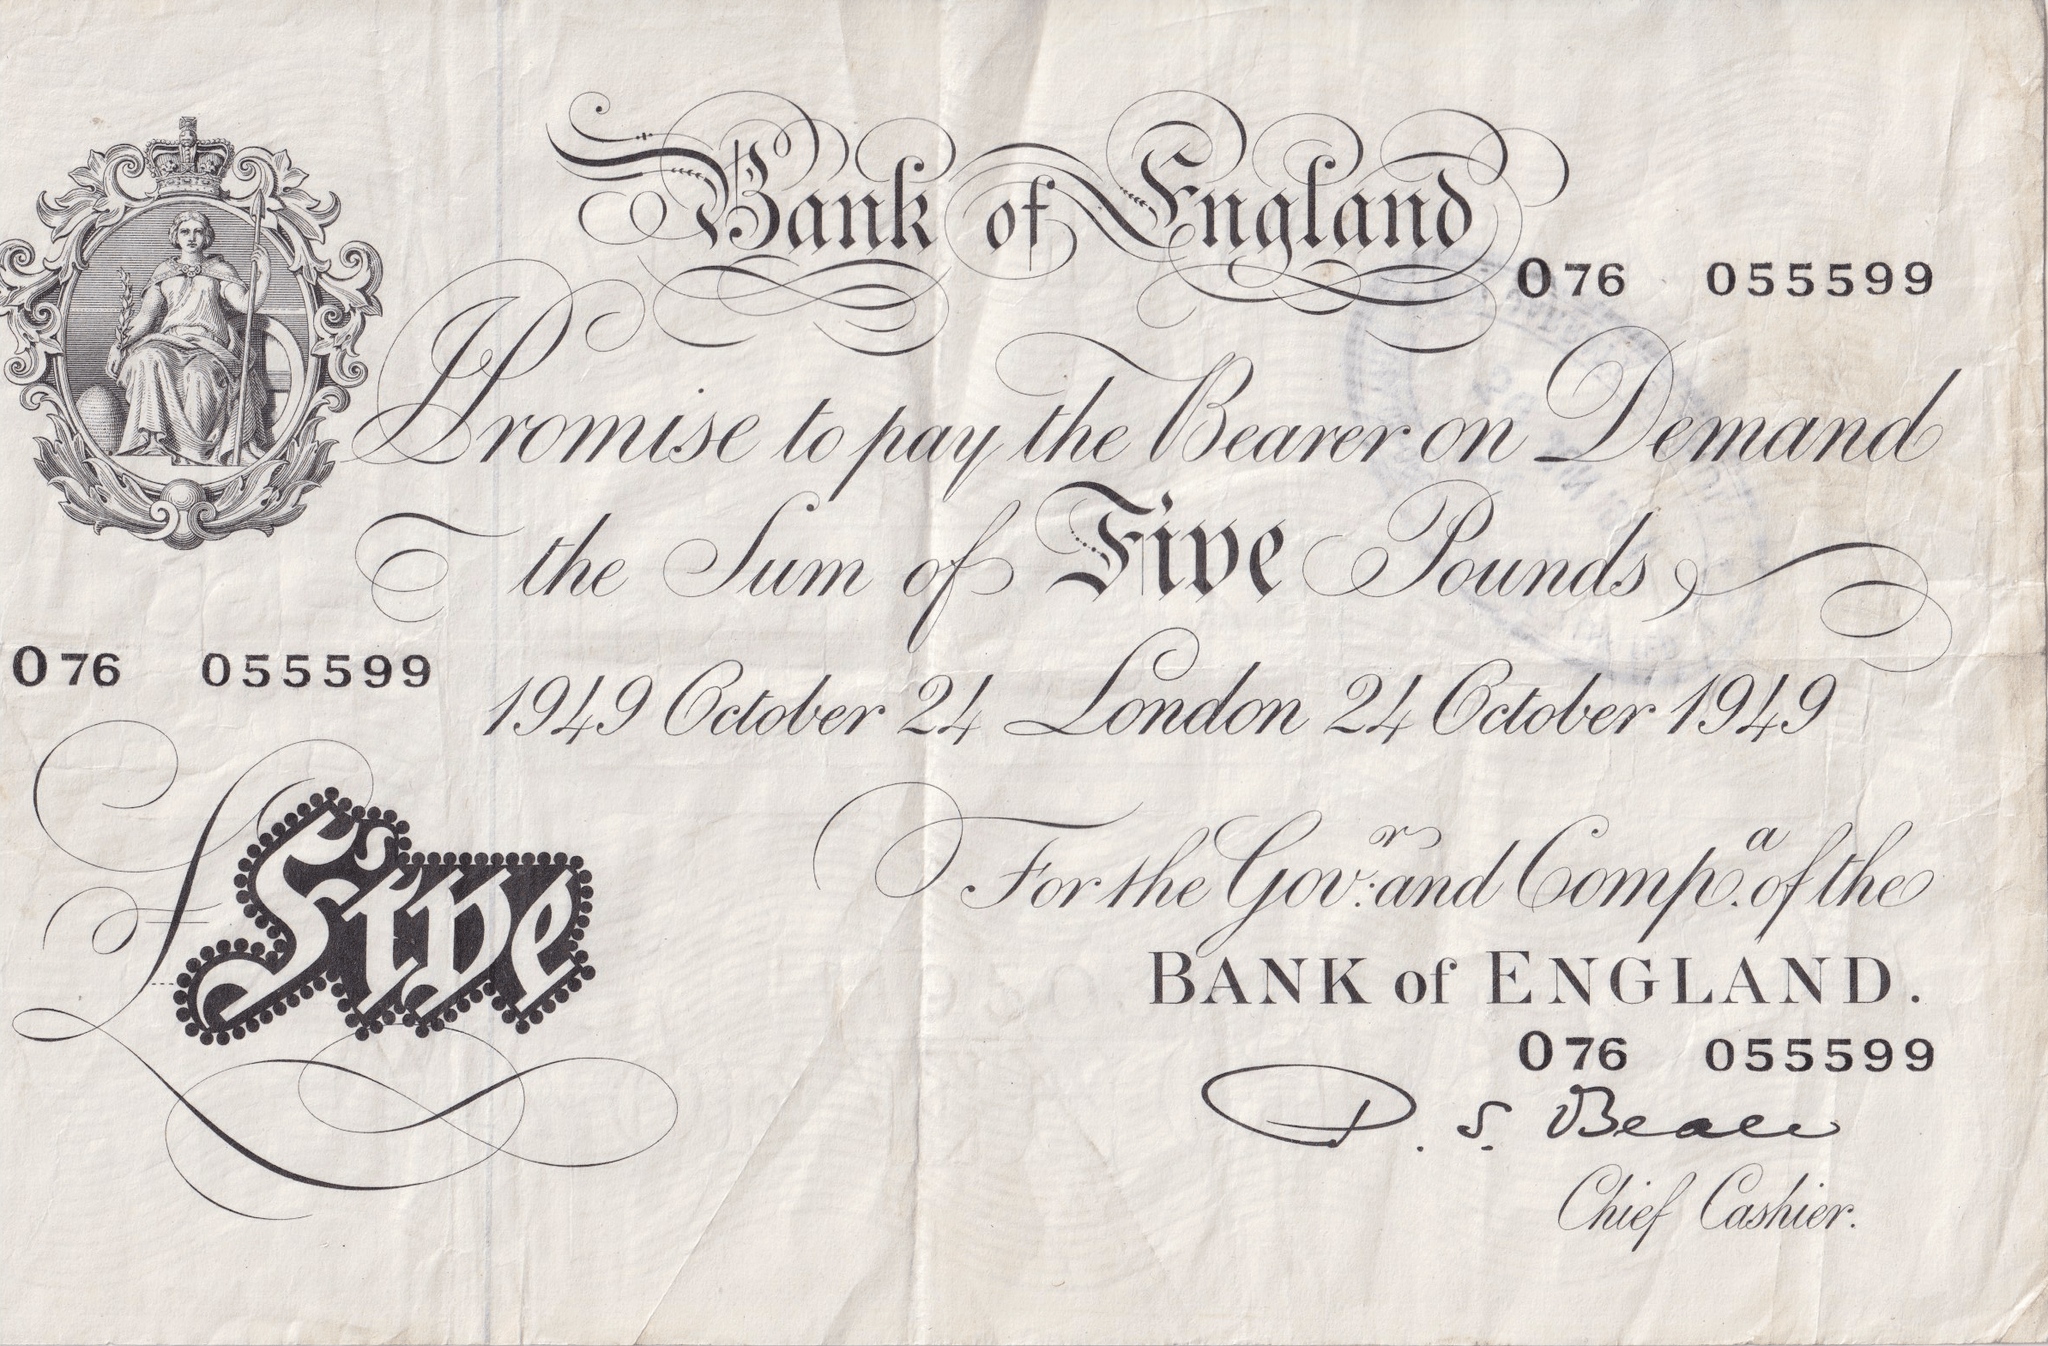 Bank of England
O76 055599
I Promise to pay the Bearer on Demand
the Sum of Five Pounds
O76 055599
1949 October 24 London 24 October 1949
For the Govr. and Compa. of the
BANK of ENGLAND.
£ Five
O76 055599
P. S. Beale
Chief Cashier.